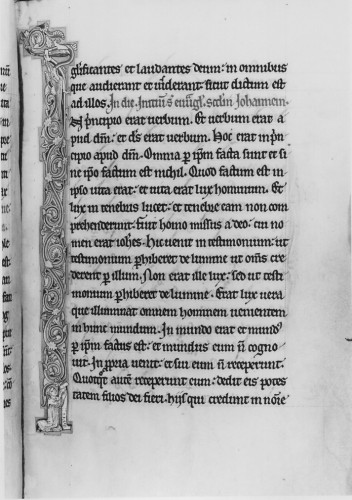 glificantes et laudantes deum: in omnibus
que audierant et uiderant: sicut dictum est
ad illos. In die. Initiũ s. euãgl. scdm Johannem.
IN principio erat uerbum. Et uerbum erat a
pud dm̃: et ds̃ erat uerbum. Hoc erat in pñ
cipio apud dm̃. Omnia p ipm̃ facta sunt et si
ne ipo factum est nichil. Quod factum est in
ipso uita erat: et uita erat lux hominum. Et
lux in tenebris lucet: et tenebre eam non com
prehenderunt. fuit homo missus a deo: cui no
men erat iohẽs. Hic uenit in testimonium: ut
testimonium phiberet de lumine ut om̃s cre
derent p illum. Non erat ille lux: sed ut testi
monium phiberet de lumine. Erat lux uera
que illuminat omnem hominem uenientem
in hunc mundum. In mundo erat et mund9
p ipm̃ factus est: et mundus eum ñ cogno
uit. In ppria uenit: et sui eum ñ receperunt.
Quotqt autẽ receperunt eum: dedit eis potes
tatem filios dei fieri. hijs qui credunt in noĩe